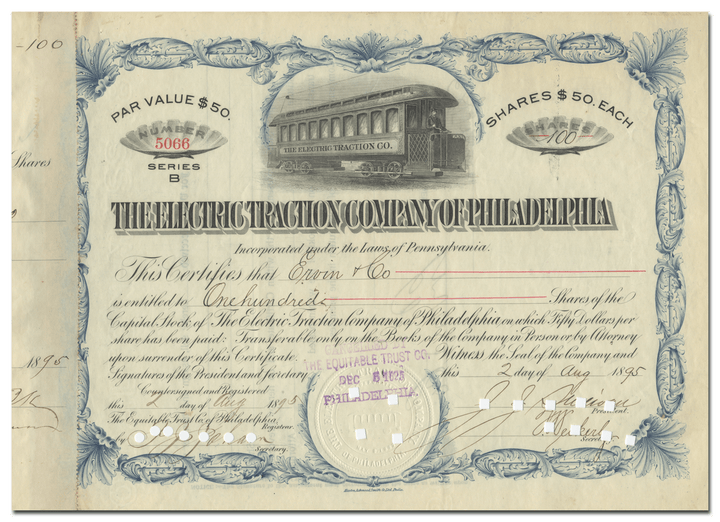 -100
Shares
1895
PAR VALUE $50.
NUMBER
5066
SERIES
B
THE ELECTRIC TRACTION CO.
SHARES $50. EACH
SHARES
-100
THE ELECTRIC TRACTION COMPANY OF PHILADELPHIA
Incorporated under the Laws of Pennsylvania.
This Certifies that Ervin & Co
is entitled to One hundred Shares of the
Capital Stock of The Electric Traction Company of Philadelphia on which Fifty Dollars per
share has been paid: Transferable only on the Books of the Company in Person or by Attorney
upon surrender of this Certificate. Witness the Seal of the Company and
Signatures of the President and Secretary this 2 day of Aug 1895
THE EQUITABLE TRUST CO.
DEC
PHILADELPHIA.
Countersigned and Registered
this 2 day of Aug 1895
The Equitable Trust Co. of Philadelphia,
Registrar.
by
Secretary.
President.
Secretary